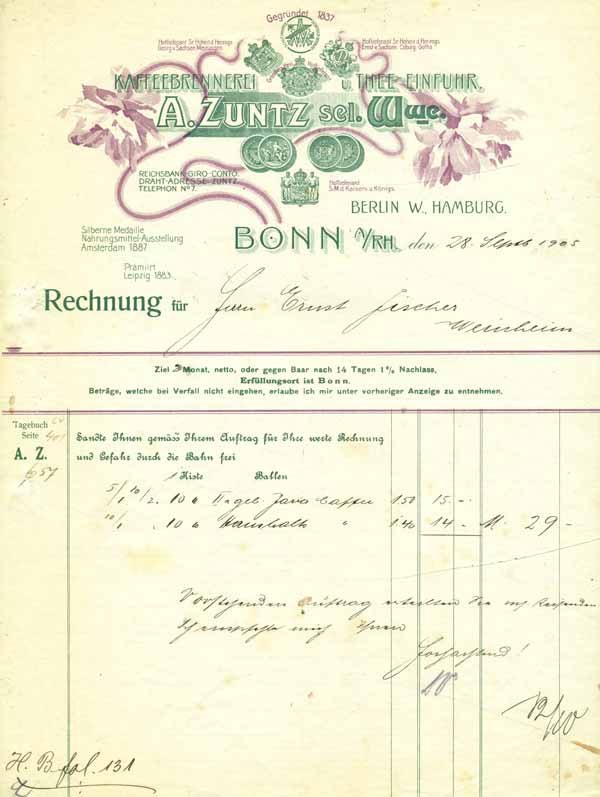 Gegründet 1837
Hoflieferant Sr. Hoheit d. Herzogs
Georg v. Sachsen Meiningen
Hoflieferant Sr. Hoheit d. Herzogs
Ernst v. Sachsen Coburg Gotha
KAFFEEBRENNEREI u. THEE-EINFUHR.
A. ZUNTZ sel. Wwe.
REICHSBANK-GIRO-CONTO.
DRAHT-ADRESSE-ZUNTZ.
TELEPHON No 7.
Hoflieferant
S. M. d. Kaisers u. Königs.
BERLIN W., HAMBURG.
Silberne Medaille
Nahrungsmittel-Ausstellung
Amsterdam 1887.
BONN a/RH. den 28. Septb 1905
Prämiirt
Leipzig 1883.
Rechnung für Herrn Ernst Fischer
Weinheim
Ziel 3 Monat, netto, oder gegen Baar nach 14 Tagen 1% Nachlass.
Erfüllungsort ist Bonn.
Beträge, welche bei Verfall nicht eingehen, erlaube ich mir unter vorheriger Anzeige zu entnehmen.
Tagebuch
Seite
A. Z.
657
Sandte Ihnen gemäss Ihrem Auftrag für Ihre werte Rechnung
und Gefahr durch die Bahn frei
1 Kiste Ballen
5/1 10/2 10 II geb. Java Caffee 1.50 15.-
10/1 10 Haushalt " 1.40 14 - M. 29 -
Vorstehenden Auftrag erteilten Sie m/ Reisenden
Ihnen
Hochachtend!
12/10
H. B. fol. 131